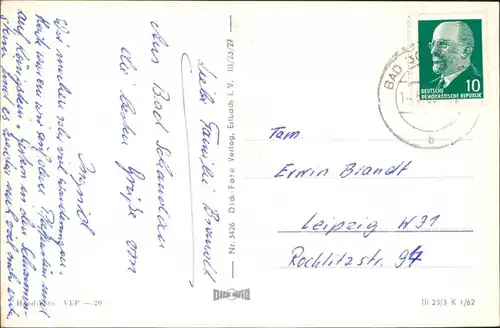 Liebe Familie Brandt
Aus Bad Schandau
die besten Grüße von
Ingrid
Wir machen sehr viel Wanderungen.
Heute waren wir auf dem Pfaffenstein und
auf Königstein.
Nr. 3426 Dick-Foto Verlag, Erlbach i. V. III/23/27
BAD
10
DEUTSCHE
DEMOKRATISCHE REPUBLIK
b
Fam.
Erwin Brandt
Leipzig W31
Rochlitzstr. 94
VEP —.20
III 23/3 K 1/62